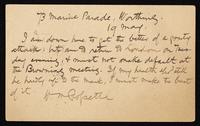 73 Marine Parade, Worthing.
19 May.
I am down here to get the better of a gouty
attack: but am to return to London on Tues-
day evening, & must not make default at
the Browning meeting. If my health shd still
be hardly up to the mark, I must make the best
of it.
W M Rossetti